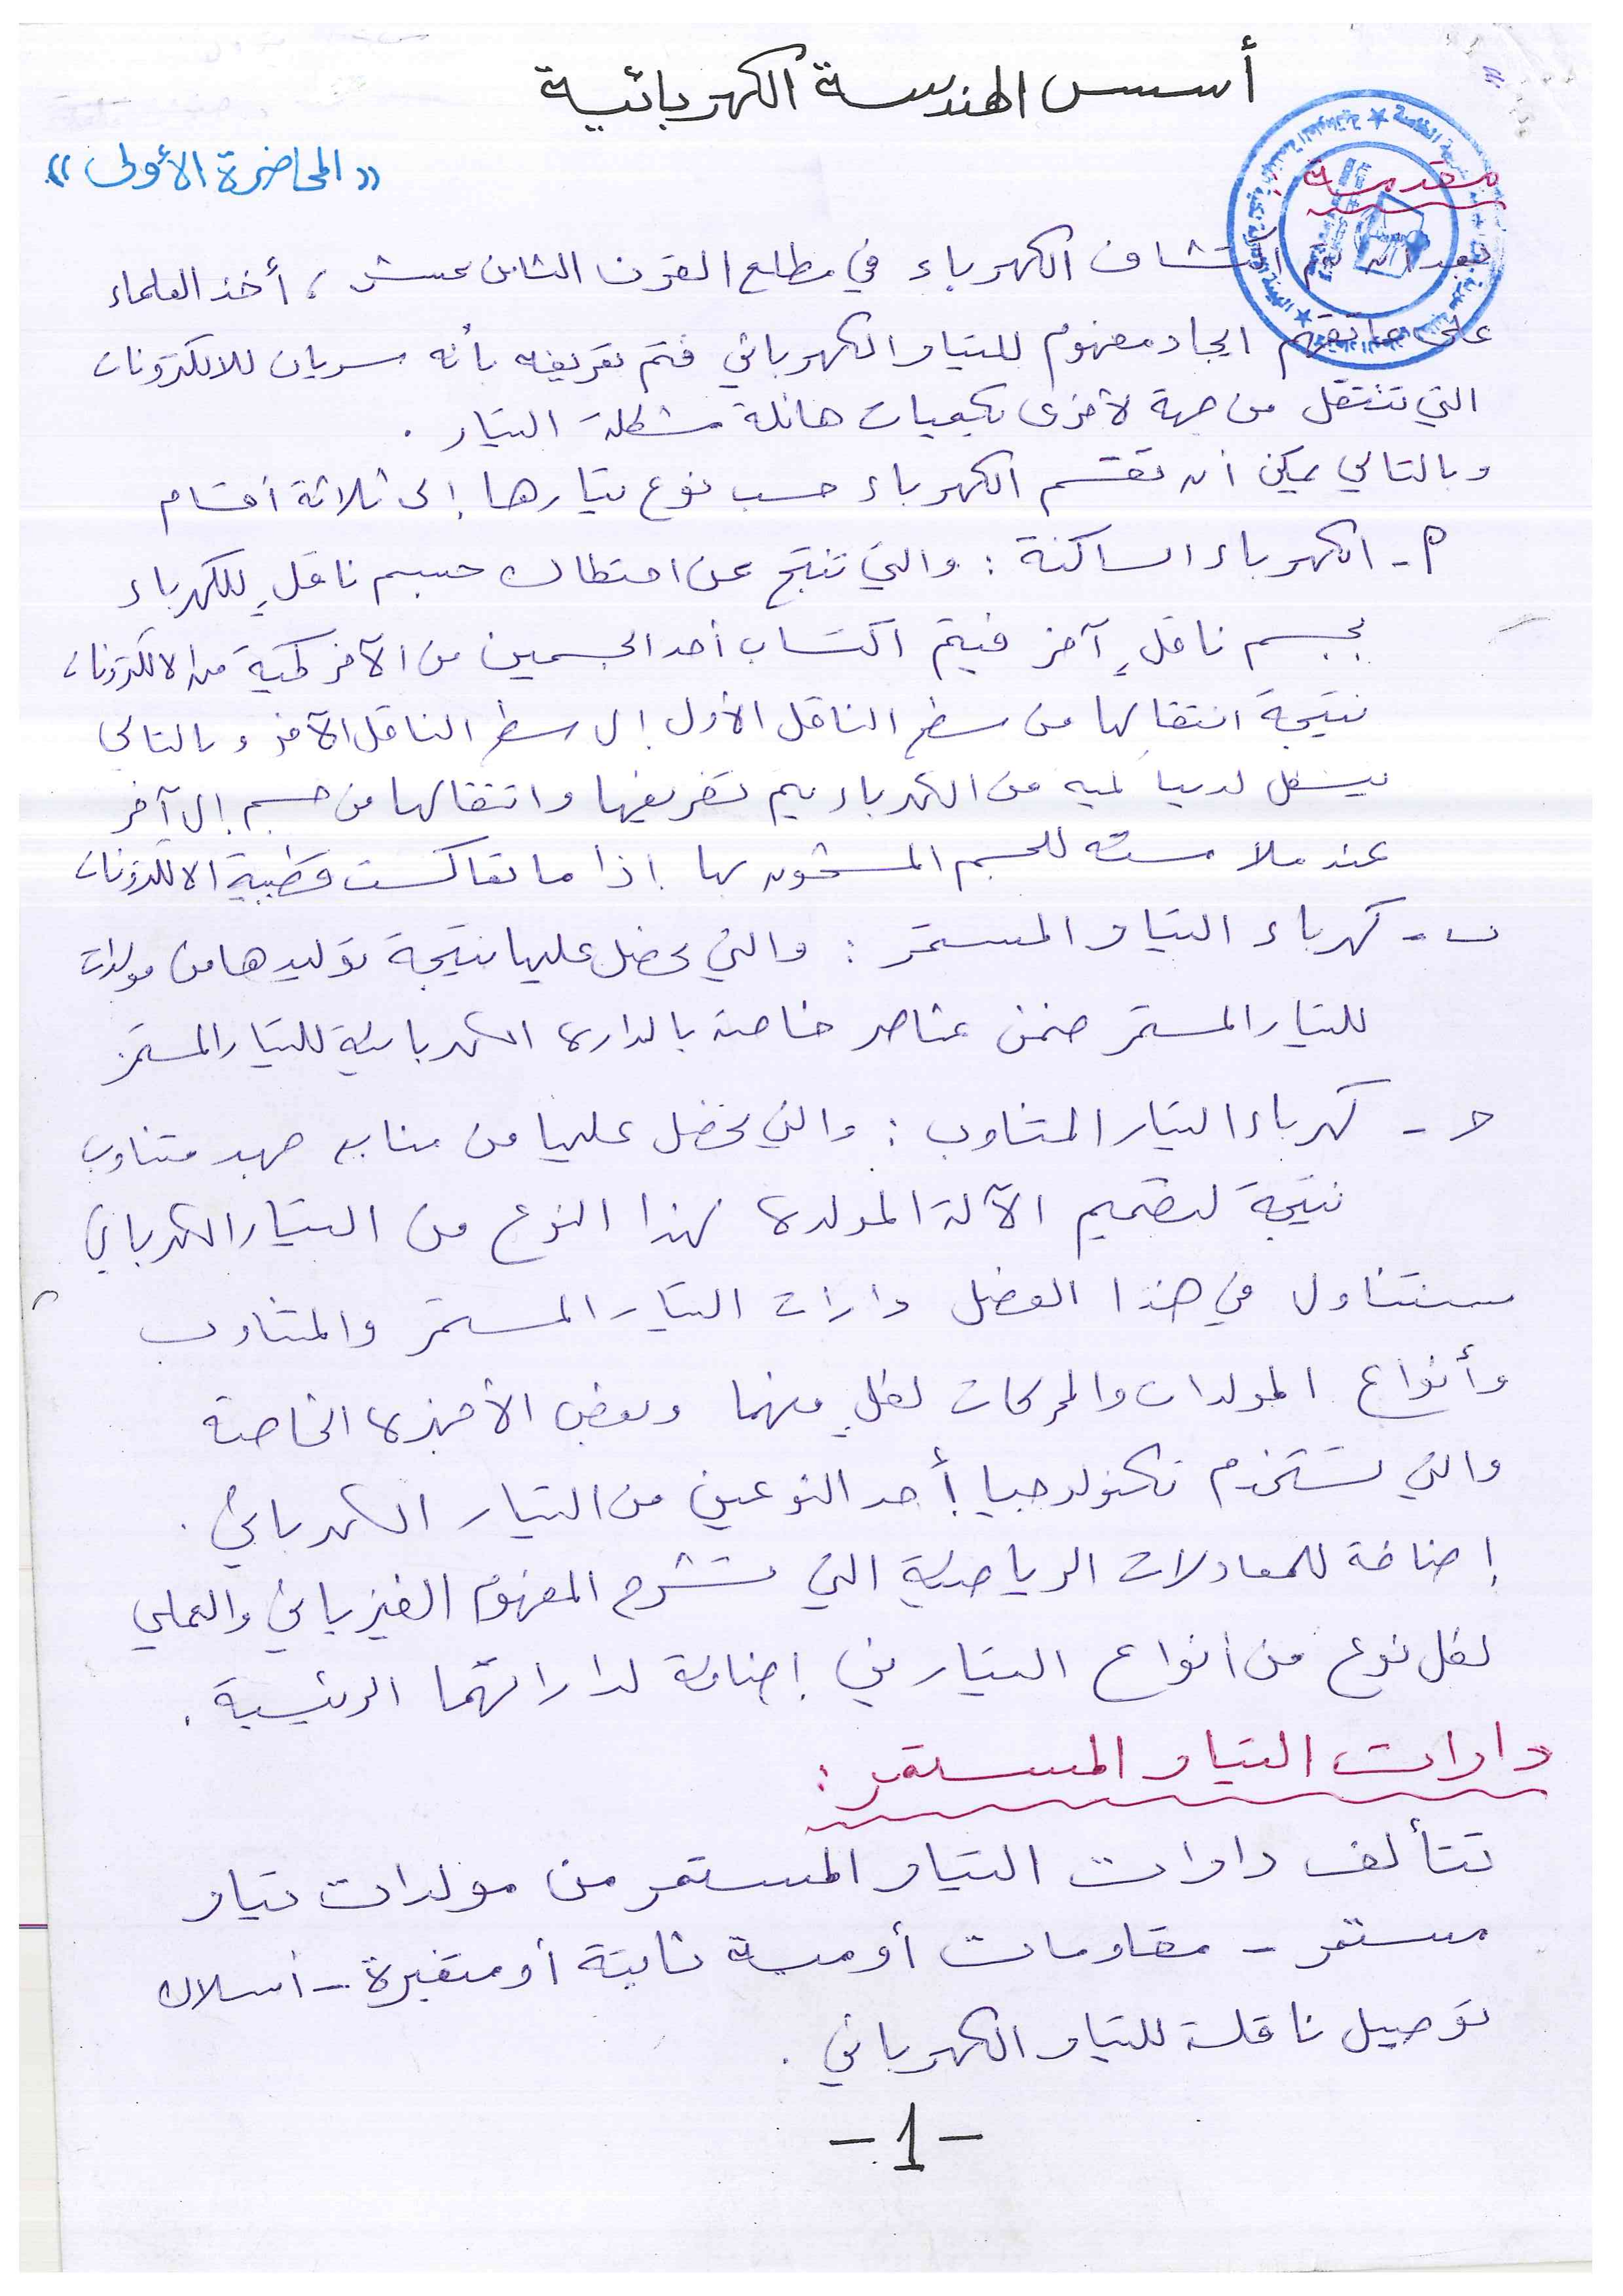 أسس الهندسة الكهربائية
« المحاضرة الأولى »
مقدمة :
بعد أن تم اكتشاف الكهرباء في مطلع القرن الثامن عشر ، أخذ العلماء
على عاتقهم ايجاد مفهوم للتيار الكهربائي فتم تعريفه بأنه سريان للالكترونات
التي تنتقل من جهة لأخرى بكميات هائلة مشكلة التيار .
وبالتالي يمكن أن تقسم الكهرباء حسب نوع تيارها إلى ثلاثة أقسام
أ - الكهرباء الساكنة : والتي تنتج عن احتكاك جسم ناقلٍ للكهرباء
بجسم ناقلٍ آخر فيتم اكتساب أحد الجسمين من الآخر كمية من الالكترونات
نتيجة انتقالها من سطح الناقل الأول إلى سطح الناقل الآخر وبالتالي
يتشكل لدينا كمية من الكهرباء يتم تفريغها وانتقالها من جسم إلى آخر
عند ملامسته للجسم المشحون بها إذا ما تعاكست قطبية الالكترونات
ب - كهرباء التيار المستمر : والتي نحصل عليها نتيجة توليدها من مولدات
للتيار المستمر ضمن عناصر خاصة بالدارة الكهربائية للتيار المستمر
ح - كهرباء التيار المتناوب : والتي نحصل عليها من منابع جهد متناوب
نتيجة لتصميم الآلة المولدة لهذا النوع من التيار الكهربائي
سنتناول في هذا الفصل دارات التيار المستمر والمتناوب
وأنواع المولدات والمحركات لكلٍ منهما وبعض الأجهزة الخاصة
والتي تستخدم تكنولوجيا أحد النوعين من التيار الكهربائي .
إضافة للمعادلات الرياضية التي تشرح المفهوم الفيزيائي والعملي
لكل نوع من أنواع التيارين إضافة لداراتهما الرئيسية .
دارات التيار المستمر :
تتألف دارات التيار المستمر من مولدات تيار
مستمر - مقاومات أومية ثابتة أو متغيرة - أسلاك
توصيل ناقلة للتيار الكهربائي .
- 1 -